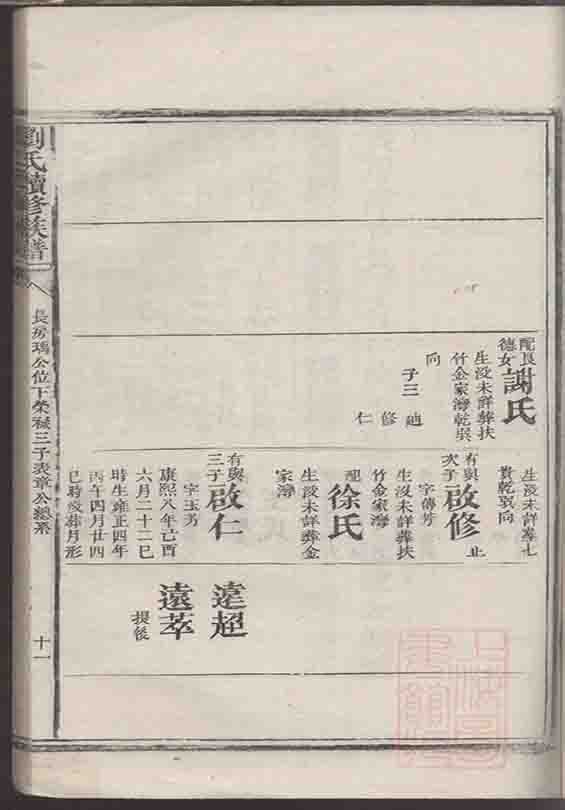 配良
德女
謝氏
生没未詳葬扶
竹金家灣乾巽
向
子三
廸
修
仁
生没未詳葬七
貴乾巽向
有與
次子
啟修
止
字傳芳
生没未詳葬扶
竹金家灣
配
徐氏
生没未詳葬金
家灣
有與
三子
啟仁
字玉芳
康熙八年己酉
六月二十二巳
時生雍正四年
丙午四月廿四
巳時殁葬月形
遠超
遠萃
提後
劉氏續修族譜
長房瑀公位下榮祿三子表章公總系
十一
上海圖書館藏